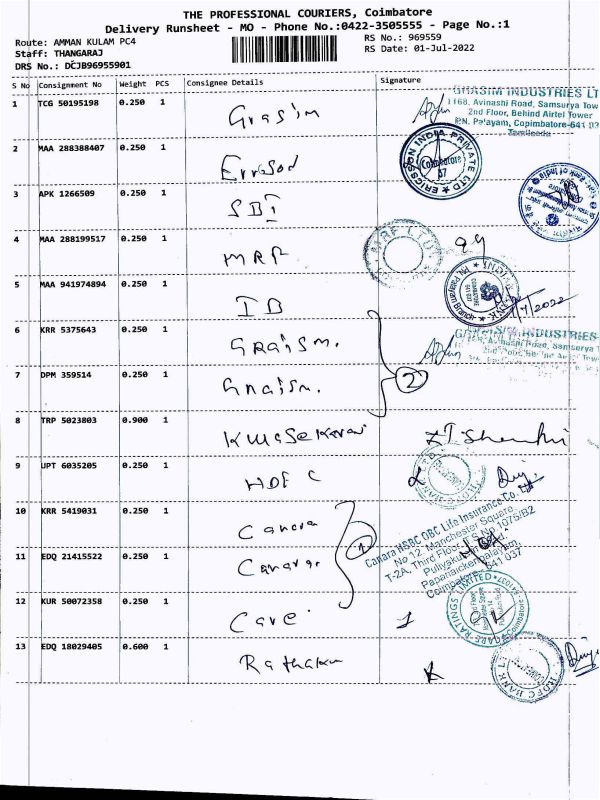 THE PROFESSIONAL COURIERS, Coimbatore
Delivery Runsheet - MO - Phone No.:0422-3505555 - Page No.:1
Route: AMMAN KULAM PC4
RS No.: 969559
Staff: THANGARAJ
RS Date: 01-Jul-2022
DRS No.: DCJB96955901
S No Consignment No Weight PCS Consignee Details Signature
1 TCG 50195198 0.250 1 Grasim
GRASIM INDUSTRIES LT
1168, Avinashi Road, Samsurya Tow
2nd Floor, Behind Airtel Tower
P.N. Palayam, Coimbatore-641 03
Tamilnadu
2 MAA 288388407 0.250 1
ERICSSON INDIA PRIVATE LTD
Coimbatore
37
3 APK 1266509 0.250 1 SBI
4 MAA 288199517 0.250 1 MRF
MRF LTD
99
5 MAA 941974894 0.250 1 IB
P.N. Palayam Branch
/7/2022
6 KRR 5375643 0.250 1 Graism.
GRASIM INDUSTRIES
7 DPM 359514 0.250 1 Graism.
2
8 TRP 5023803 0.900 1
9 UPT 6035205 0.250 1 HDFC
10 KRR 5419031 0.250 1 Canara
1
Canara HSBC OBC Life Insurance Co. Ltd
No 12, Manchester Square,
T-2A, Third Floor, T.S No 1075/B2
Puliyakulam
Papanaickenpalayam,
Coimbatore - 641 037
11 EDQ 21415522 0.250 1 Canara.
12 KUR 50072358 0.250 1 Care 1
CARE RATINGS LIMITED
13 EDQ 18029405 0.600 1
HDFC BANK LT